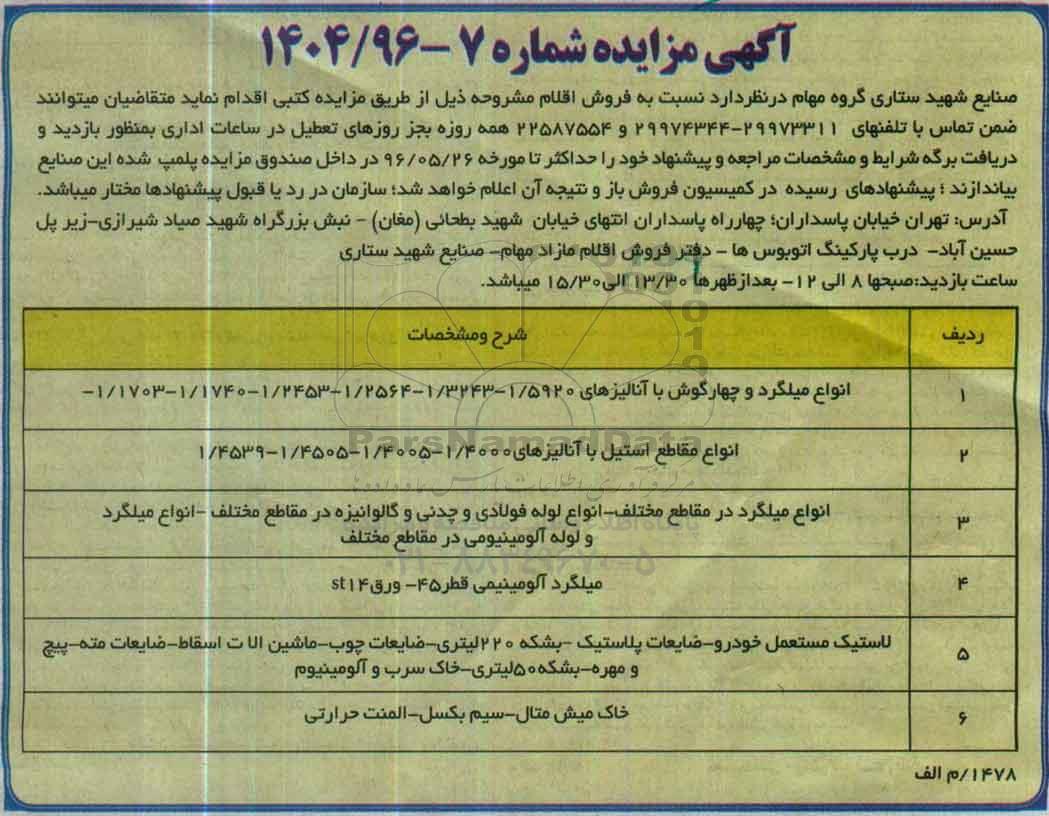 آگهی مزایده شماره ۷ –۱۴۰۴/۹۶
صنایع شهید ستاری گروه مهام درنظردارد نسبت به فروش اقلام مشروحه ذیل از طریق مزایده کتبی اقدام نماید متقاضیان میتوانند
ضمن تماس با تلفنهای ۲۹۹۷۳۳۱۱-۲۹۹۷۴۳۴۴ و ۲۲۵۸۷۵۵۴ همه روزه بجز روزهای تعطیل در ساعات اداری بمنظور بازدید و
دریافت برگه شرایط و مشخصات مراجعه و پیشنهاد خود را حداکثر تا مورخه ۹۶/۰۵/۲۶ در داخل صندوق مزایده پلمپ شده این صنایع
بیاندازند ؛ پیشنهادهای رسیده در کمیسیون فروش باز و نتیجه آن اعلام خواهد شد؛ سازمان در رد یا قبول پیشنهادها مختار میباشد.
آدرس: تهران خیابان پاسداران؛ چهارراه پاسداران انتهای خیابان شهید بطحائی (مغان) – نبش بزرگراه شهید صیاد شیرازی–زیر پل
حسین آباد– درب پارکینگ اتوبوس ها – دفتر فروش اقلام مازاد مهام– صنایع شهید ستاری
ساعت بازدید:صبحها ۸ الی ۱۲– بعدازظهرها ۱۳/۳۰ الی۱۵/۳۰ میباشد.
ردیف شرح ومشخصات
۱ انواع میلگرد و چهارگوش با آنالیزهای ۱/۵۹۲۰–۱/۳۲۴۳–۱/۲۵۶۴–۱/۲۴۵۳–۱/۱۷۴۰–۱/۱۷۰۳–
۲ انواع مقاطع استیل با آنالیزهای۱/۴۰۰۰–۱/۴۰۰۵–۱/۴۵۰۵–۱/۴۵۳۹
۳ انواع میلگرد در مقاطع مختلف–انواع لوله فولادی و چدنی و گالوانیزه در مقاطع مختلف –انواع میلگرد
و لوله آلومینیومی در مقاطع مختلف
۴ میلگرد آلومینیمی قطر۴۵– ورق st۱۴
۵ لاستیک مستعمل خودرو–ضایعات پلاستیک –بشکه ۲۲۰لیتری–ضایعات چوب–ماشین الا ت اسقاط–ضایعات مته–پیچ
و مهره–بشکه۵۰لیتری–خاک سرب و آلومینیوم
۶ خاک میش متال–سیم بکسل–المنت حرارتی
۱۴۷۸/م الف
ParsNamadData